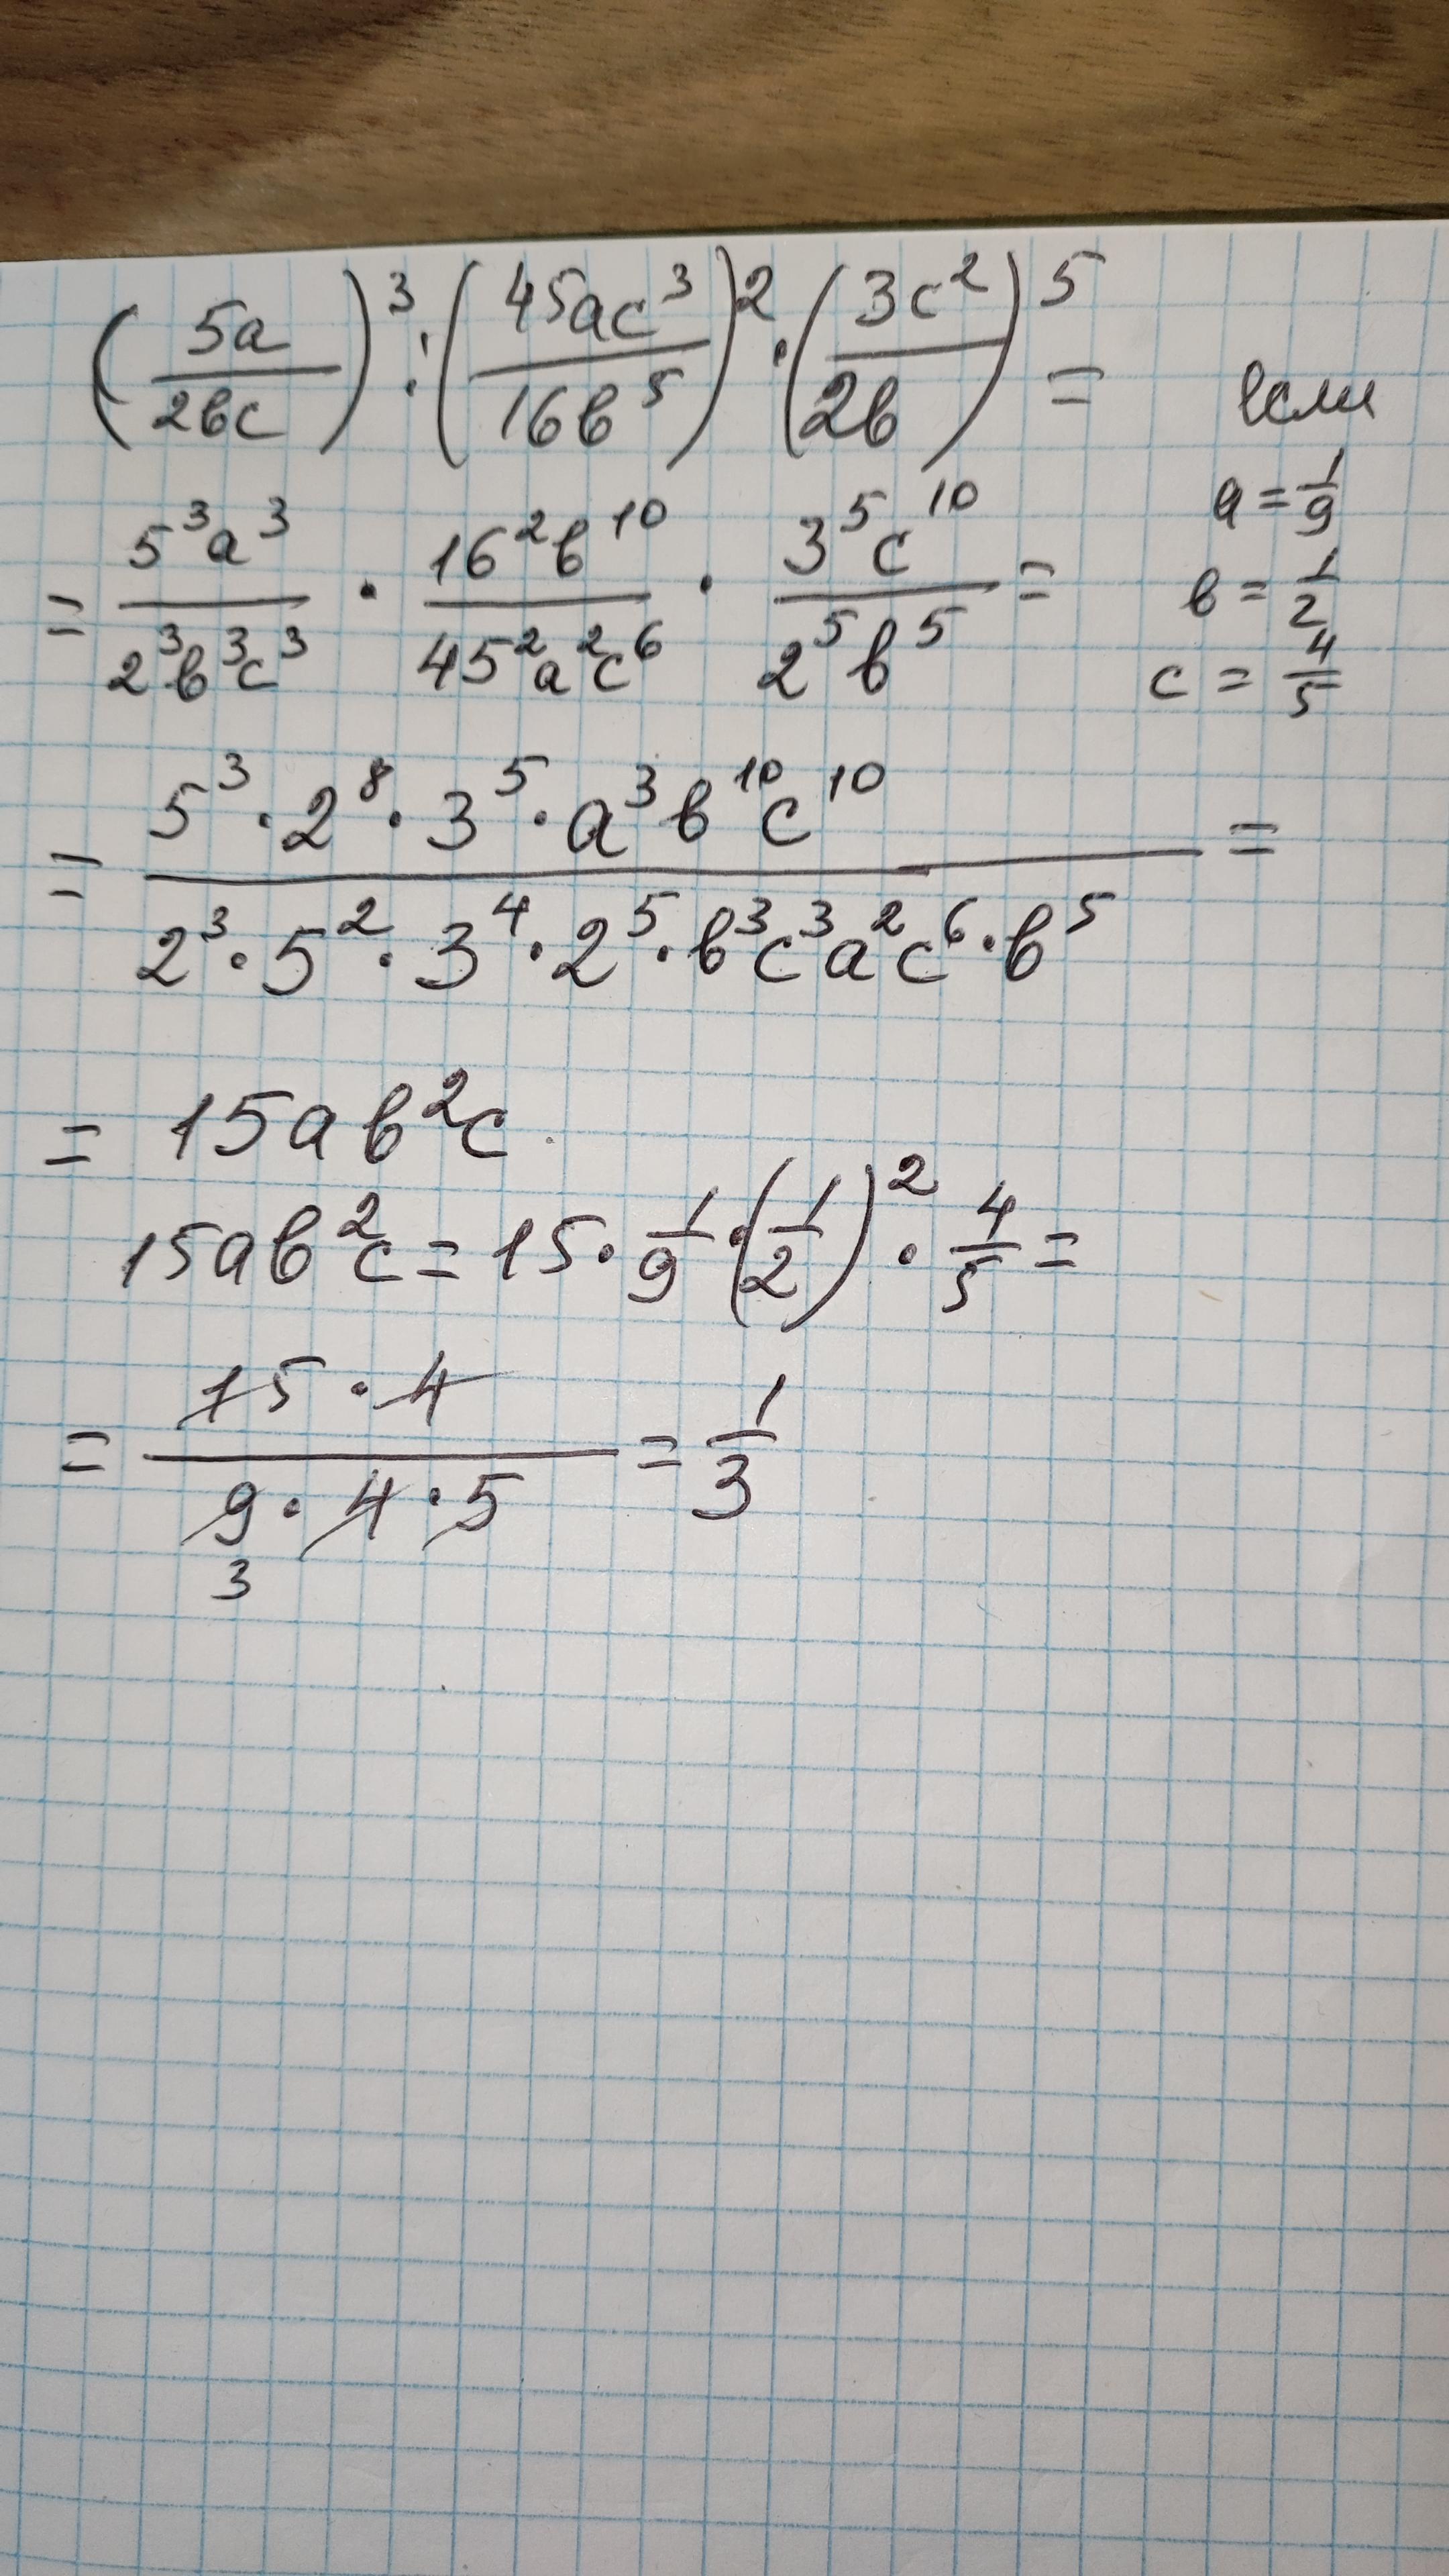 (5a/2bc)³ : (45ac³/16b⁵)² · (3c²/2b)⁵ = если
a = 1/9
= 5³a³/2³b³c³ · 16²b¹⁰/45²a²c⁶ · 3⁵c¹⁰/2⁵b⁵ =
b = 1/2
c = 4/5
= 5³ · 2⁸ · 3⁵ · a³b¹⁰c¹⁰ / 2³ · 5² · 3⁴ · 2⁵ · b³c³a²c⁶ · b⁵ =
= 15ab²c
15ab²c = 15 · 1/9 · (1/2)² · 4/5 =
= 15 · 4 / 9 · 4 · 5 = 1/3
3